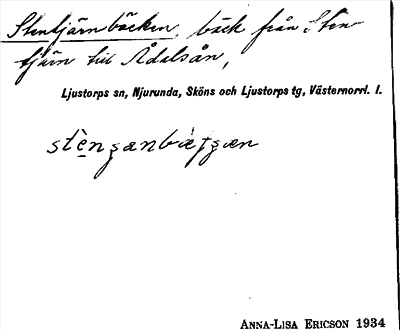 Stentjärnbäcken, bäck från Sten-
tjärn till Ådalsån,
Ljustorps sn, Njurunda, Sköns och Ljustorps tg, Västernorrl. l.
ANNA-LISA ERICSON 1934